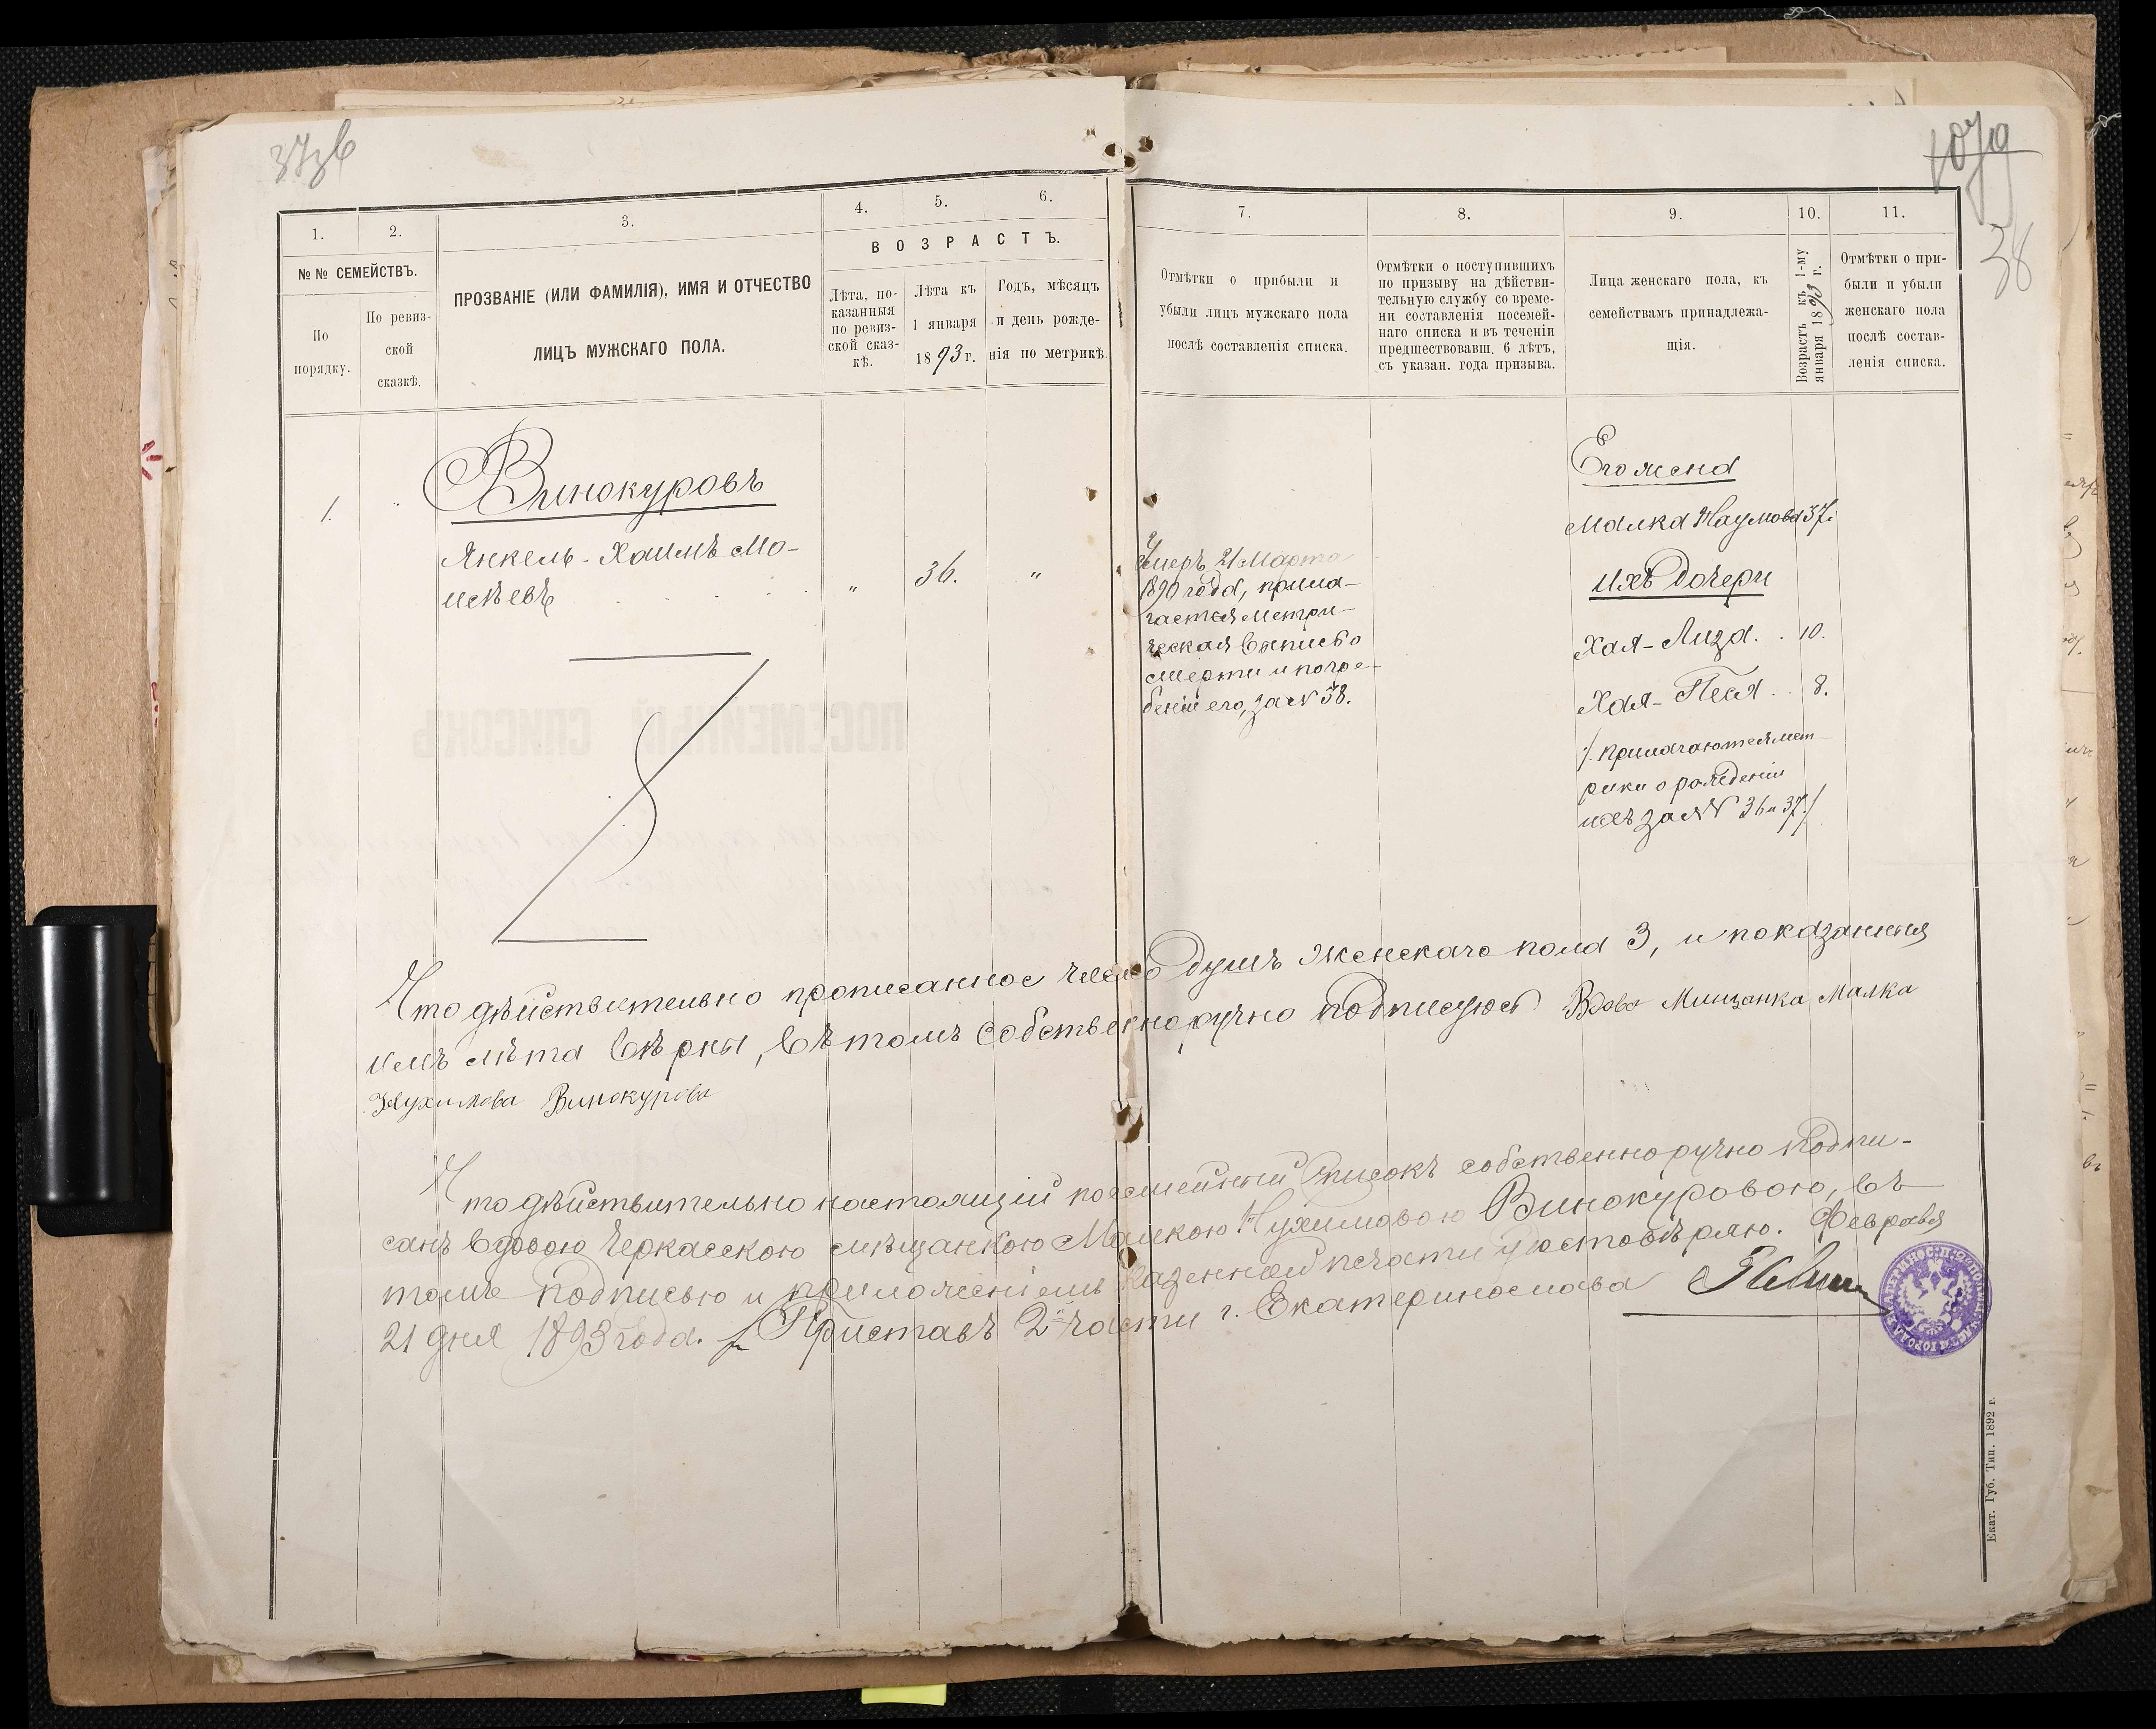 37зв
1079
38
1.
2.
3.
4.
5.
6.
ВОЗРАСТЪ.
№№ СЕМЕЙСТВЪ.
По порядку.
По ревиз-
ской
сказкѣ.
ПРОЗВАНІЕ (ИЛИ ФАМИЛІЯ), ИМЯ И ОТЧЕСТВО
ЛИЦЪ МУЖСКАГО ПОЛА.
Лѣта, по-
казанныя
по ревиз-
ской сказ-
кѣ.
Лѣта къ
1 января
1893 г.
Годъ, мѣсяцъ
и день рожде-
нія по метрикѣ.
7.
8.
9.
10.
11.
Отмѣтки о прибыли и
убыли лицъ мужскаго пола
послѣ составленія списка.
Отмѣтки о поступившихъ
по призыву на дѣйстви-
тельную службу со време-
ни составленія посемей-
наго списка и въ теченіи
предшествовавш. 6 лѣтъ,
съ указан. года призыва.
Лица женскаго пола, къ
семействамъ принадлежа-
щія.
Возрастъ къ 1-му
января 1893 г.
Отмѣтки о при-
были и убыли
женскаго пола
послѣ состав-
ленія списка.
1.
Винокуровъ
Янкель-Хаимъ Мо-
исѣевъ . . . . „ 36. „
умеръ 21 Марта
1890 года, прила-
гается метри-
ческая выпись о
смерти и погре-
беніи его, за № 38.
Его жена
Малка Наумова 37.
ихъ дочери
Хая-Лиза. . 10.
Хая-Песя . . 8.
/. прилагаются мет-
рики о рожденіи
ихъ за №№ 36 и 37./
Что дѣйствительно прописанное число душъ женскаго пола 3, и показанныя
имъ лѣта вѣрны, въ томъ собственноручно подписуюсь Вдова Мищанка Малка
Нухимова Винокурова
Что дѣйствительно настоящій посемейный списокъ собственноручно подпи-
санъ вдовою Черкасскою мѣщанкою Малкою Нухимовою Винокуровою, въ
томъ подписью и приложеніемъ казенной печати удостовѣряю. Февраля
21 дня 1893 года. Приставъ 2й части г. Екатеринослава
Екат. Губ. Тип. 1892 г.